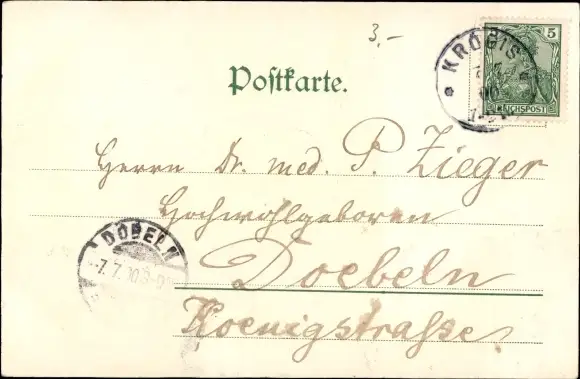 3.-
5
REICHSPOST
KRÖGIS
Postkarte.
Herrn Dr. med. P. Zieger
Hochwohlgeboren
DÖBELN
7.7.00
Doebeln
Koenigstraße.